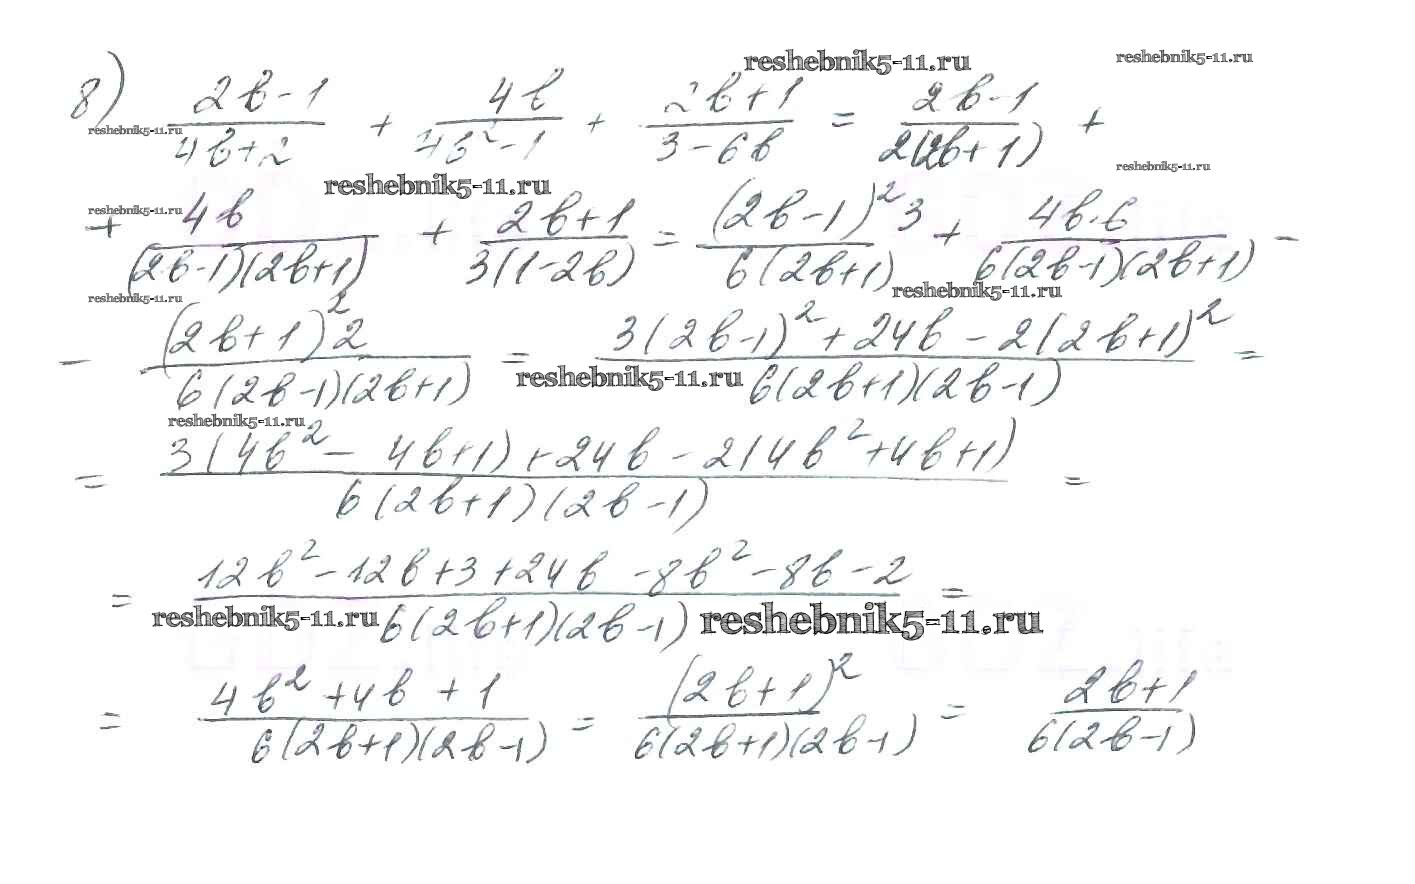 reshebnik5-11.ru reshebnik5-11.ru
8) (2b-1)/(4b+2) + 4b/(4b²-1) + (2b+1)/(3-6b) = (2b-1)/(2(2b+1)) +
reshebnik5-11.ru
reshebnik5-11.ru
reshebnik5-11.ru
reshebnik5-11.ru
+ 4b/((2b-1)(2b+1)) + (2b+1)/(3(1-2b)) = (2b-1)²3/(6(2b+1)) + 4b·6/(6(2b-1)(2b+1)) -
reshebnik5-11.ru
reshebnik5-11.ru
- (2b+1)²2/(6(2b-1)(2b+1)) = (3(2b-1)²+24b-2(2b+1)²)/(6(2b+1)(2b-1)) =
reshebnik5-11.ru
reshebnik5-11.ru
= (3(4b²-4b+1)+24b-2(4b²+4b+1))/(6(2b+1)(2b-1)) =
= (12b²-12b+3+24b-8b²-8b-2)/(6(2b+1)(2b-1)) =
reshebnik5-11.ru reshebnik5-11.ru
= (4b²+4b+1)/(6(2b+1)(2b-1)) = (2b+1)²/(6(2b+1)(2b-1)) = (2b+1)/(6(2b-1))